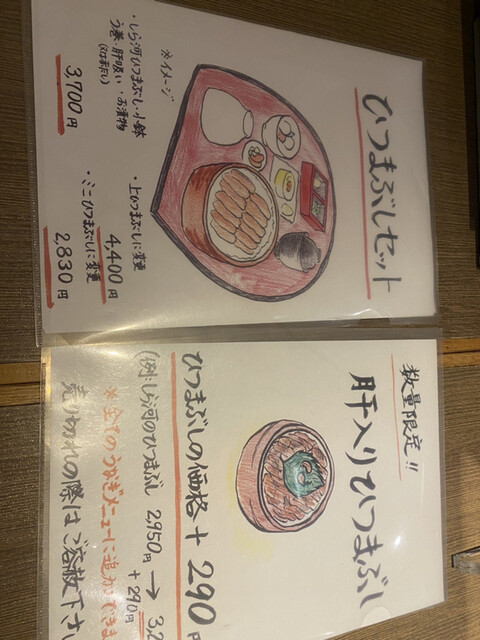 ひつまぶしセット
※イメージ
・しら河ひつまぶし・小鉢
う巻・肝吸い・お漬物
3,700円
・上ひつまぶしに変更
4,400円
・ミニひつまぶしに変更
2,830円
数量限定!!
肝入りひつまぶし
ひつまぶしの価格+290円
(例:しら河のひつまぶし 2,950円→3,2
+290円
※全てのうなぎメニューに追加できま
売り切れの際はご容赦下さい